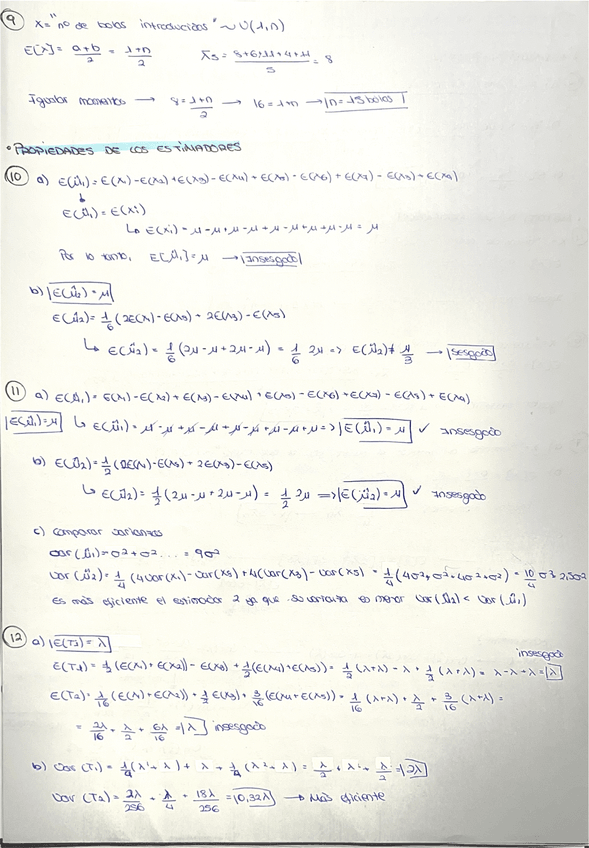 9 X = "nº de bolas introducidas" ~ U(1,n)
E[X] = a+b/2 = 1+n/2 X̄5 = 8+6+11+4+11/5 = 8
Igualar momentos → 8 = 1+n/2 → 16 = 1+n → n = 15 bolas
• PROPIEDADES DE LOS ESTIMADORES
10 a) E(û1) = E(x1) - E(x2) + E(x3) - E(x4) + E(x5) - E(x6) + E(x7) - E(x8) + E(x9)
E(û1) = E(xi)
↳ E(xi) = μ - μ + μ - μ + μ - μ + μ - μ + μ = μ
Por lo tanto, E[û1] = μ → Insesgado
b) E(û2) = μ
E(û2) = 1/6 (2E(x1) - E(x5) + 2E(x3) - E(x5)
↳ E(û2) = 1/6 (2μ - μ + 2μ - μ) = 1/6 2μ => E(û2) ≠ μ/3 → Sesgado
11 a) E(û1) = E(x1) - E(x2) + E(x3) - E(x4) + E(x5) - E(x6) + E(x7) - E(x8) + E(x9)
E(û1) = μ ↳ E(û1) = μ - μ + μ - μ + μ - μ + μ - μ + μ => E(û1) = μ ✓ Insesgado
b) E(û2) = 1/2 (2E(x1) - E(x5) + 2E(x3) - E(x5)
↳ E(û2) = 1/2 (2μ - μ + 2μ - μ) = 1/2 2μ => E(û2) = μ ✓ Insesgado
c) Comparar varianzas
Var(û1) = σ² + σ² ... = 9σ²
Var(û2) = 1/4 (4Var(x1) - Var(x5) + 4(Var(x3) - Var(x5) = 1/4 (4σ² + σ² + 4σ² + σ²) = 10/4 σ² = 2,5σ²
Es más eficiente el estimador 2 ya que su varianza es menor Var(û2) < Var(û1)
12 a) E(T2) = λ
insesgado
E(T1) = 1/2 (E(x1) + E(x2)) - E(x3) + 1/2 (E(x4) + E(x5)) = 1/2 (λ+λ) - λ + 1/2 (λ+λ) = λ - λ + λ = λ
E(T2) = 1/16 (E(x1) + E(x2)) + 1/2 E(x3) + 3/16 (E(x4) + E(x5)) = 1/16 (λ+λ) + λ/2 + 3/16 (λ+λ) =
= 2λ/16 + λ/2 + 6λ/16 = λ insesgado
b) Var (T1) = 1/4 (λ + λ) + λ + 1/4 (λ + λ) = λ/2 + λ + λ/2 = 2λ
Var (T2) = 2λ/256 + λ/4 + 18λ/256 = 0,32λ → Más eficiente